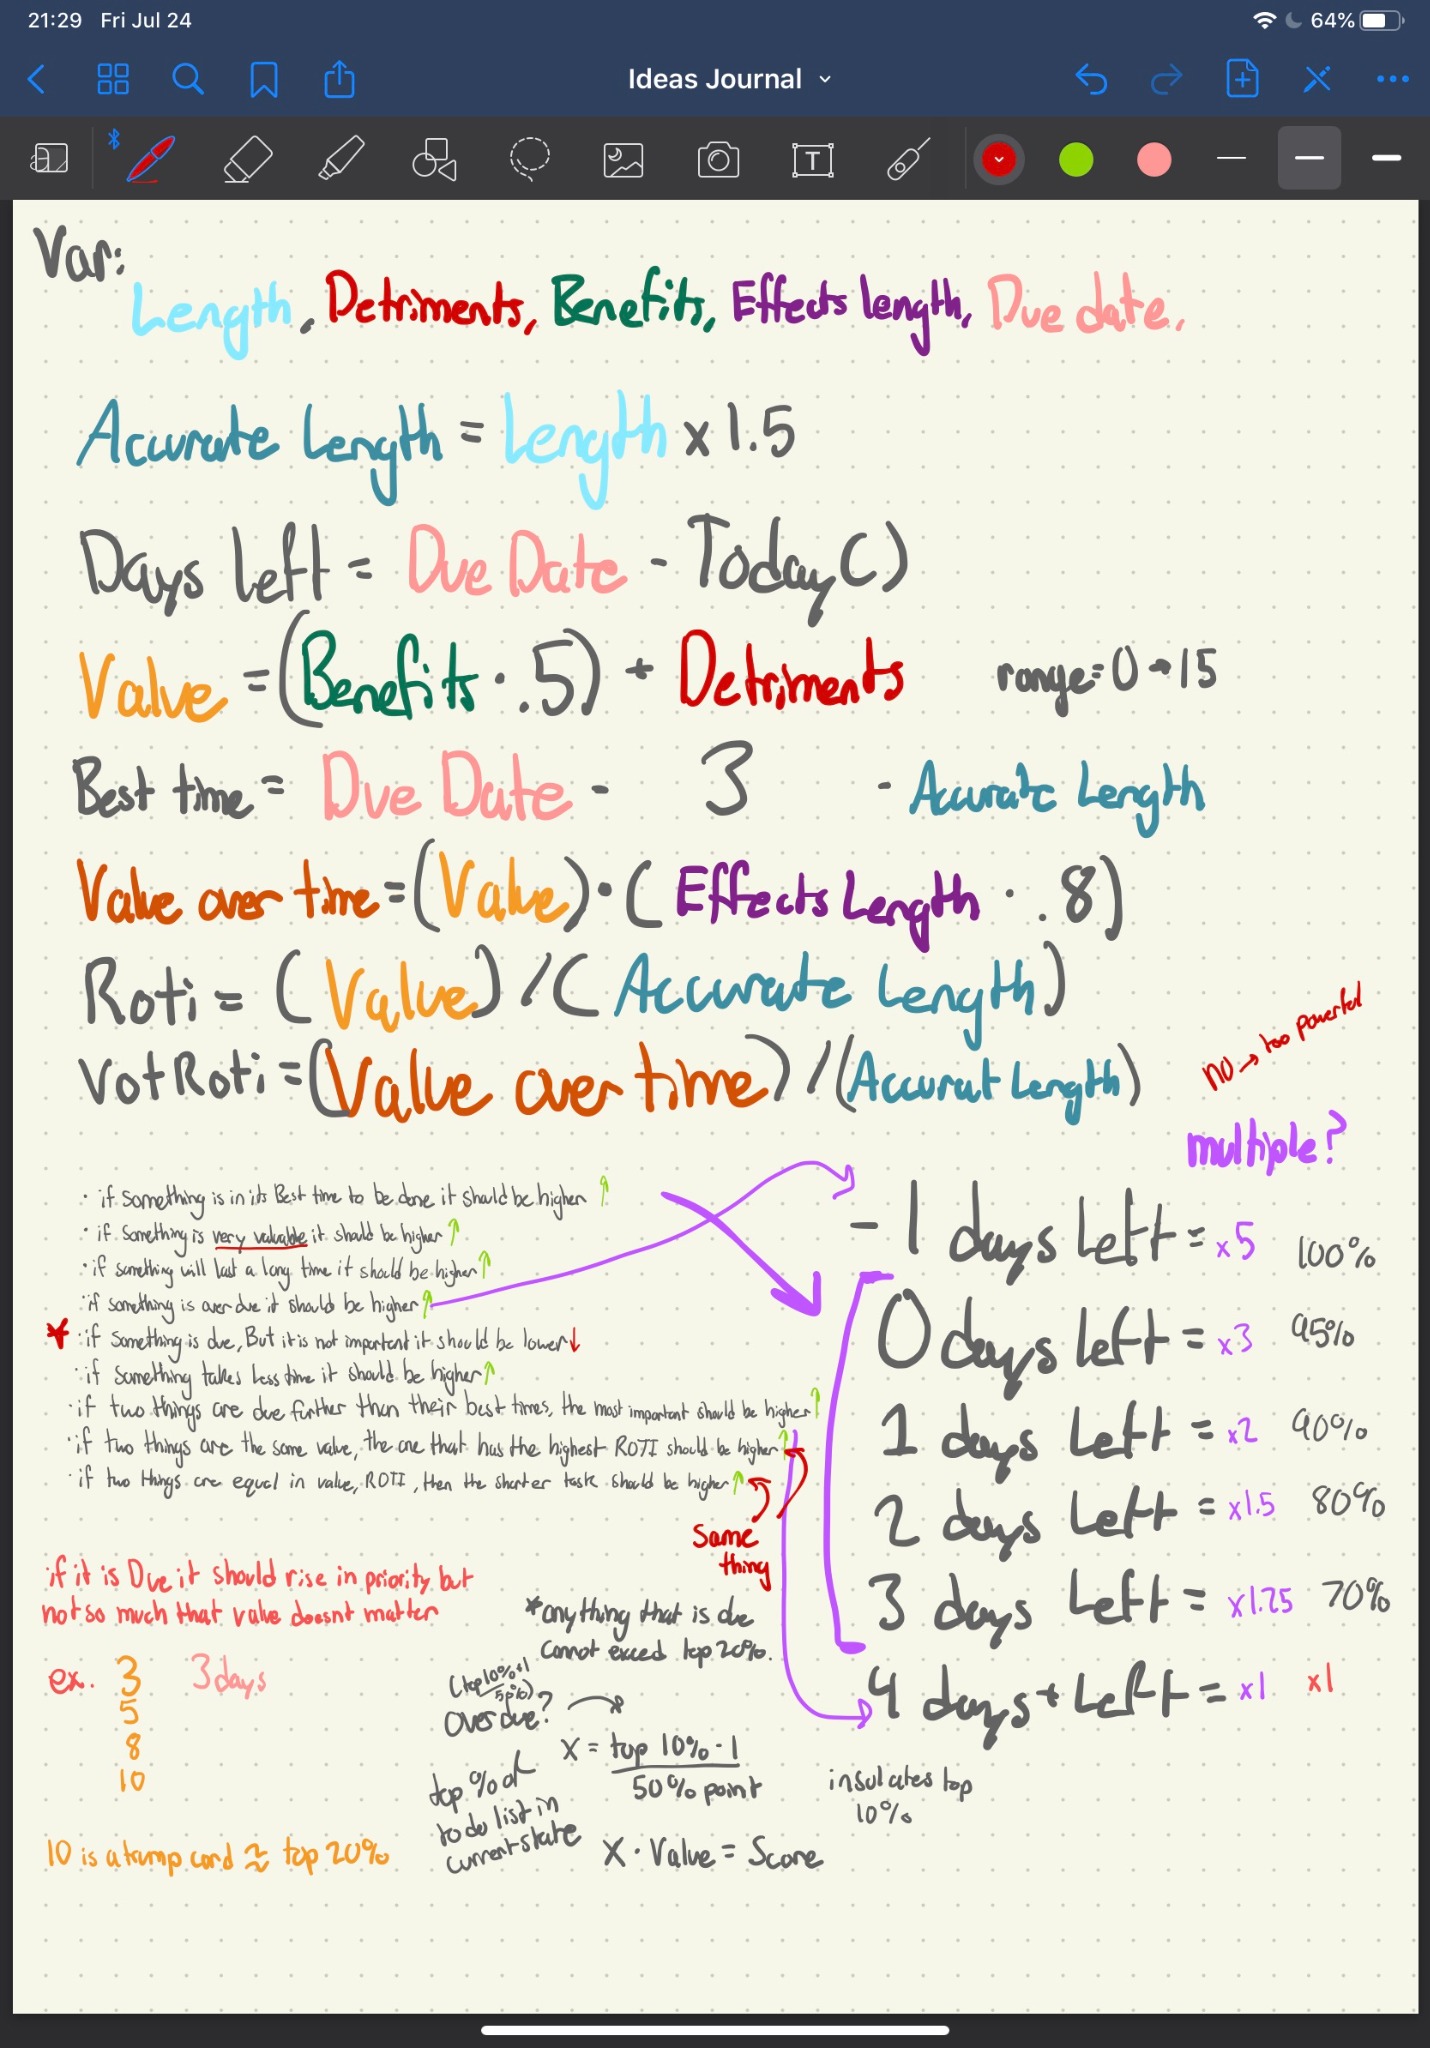 21:29 Fri Jul 24 64%
Ideas Journal
Var:
Length, Detriments, Benefits, Effects length, Due date,
Accurate Length = Length x 1.5
Days Left = Due Date - Today()
Value = (Benefits · .5) + Detriments range = 0 → 15
Best time = Due Date - 3 - Accurate Length
Value over time = (Value) · (Effects Length · .8)
Roti = (Value) / (Accurate Length)
VotRoti = (Value over time) / (Accurat Length)
no → too powerful
multiple?
· if something is in its Best time to be done it should be higher ↑
· if something is very valuable it should be higher ↑
· if something will last a long time it should be higher ↑
· if something is over due it should be higher ↑
* · if something is due, But it is not important it should be lower ↓
· if something takes less time it should be higher ↑
· if two things are due further than their best times, the most important should be higher ↑
· if two things are the same value, the one that has the highest ROTI should be higher ↑
· if two things are equal in value, ROTI, then the shorter task should be higher ↑
Same
thing
-1 days left = x5 100%
0 days left = x3 95%
1 days left = x2 90%
2 days left = x1.5 80%
3 days Left = x1.25 70%
4 days + Left = x1 x1
insulates top
10%
if it is Due it should rise in priority but
not so much that value doesnt matter
ex. 3 3 days
5
8
10
10 is a trump card ≈ top 20%
*anything that is due
cannot exceed top 20%.
(top 10% + 1
50%)
over due? →
X = top 10% · 1
50% point
top % of
to do list in
current state
X · Value = Score